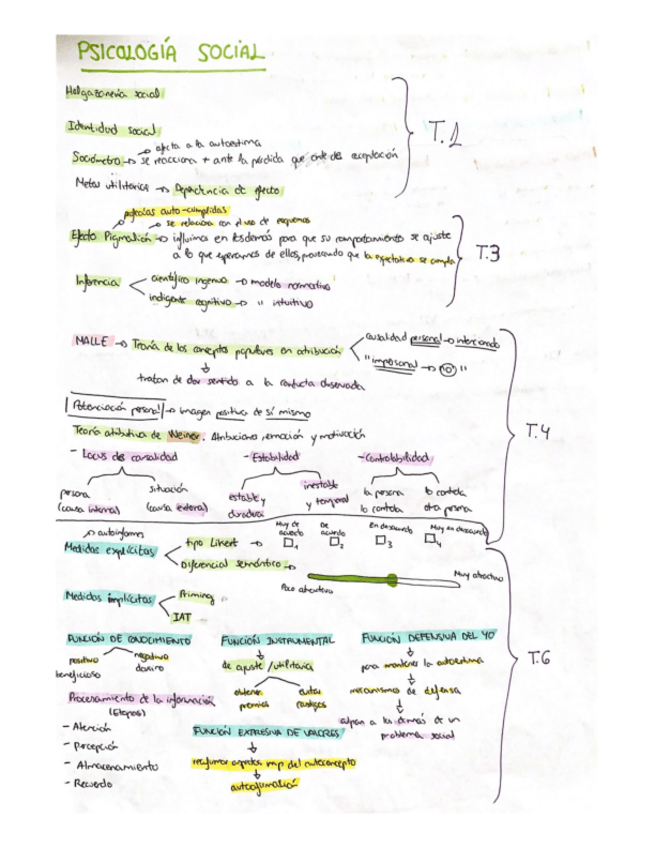 PSICOLOGÍA SOCIAL
Holgazanería social
T.1
Identidad social
→ afecta a la autoestima
Sociómetro → se reacciona + ante la pérdida que ante la aceptación
Metas utilitarias → Dependencia de efecto
profecías auto-cumplidas
→ se relaciona con el uso de esquemas
Efecto Pigmalión → influimos en los demás para que su comportamiento se ajuste
a lo que esperamos de ellos, provocando que la expectativa se cumpla
T.3
Inferencia
científico ingenuo → modelo normativo
indigente cognitivo → " intuitivo
MALLE → Teoría de los conceptos populares en atribución
causalidad personal → intencionada
" impersonal → "no" "
tratan de dar sentido a la conducta observada
Potenciación personal → imagen positiva de sí mismo
Teoría atributiva de Weiner. Atribuciones, emoción y motivación
T.4
- Locus de causalidad - Estabilidad - Controlabilidad
persona (causa interna)
situación (causa externa)
estable y duradera
inestable y temporal
la persona lo controla
lo controla otra persona
→ autoinforme
Medidas explícitas
tipo Likert →
Muy de acuerdo 1
De acuerdo 2
En desacuerdo 3
Muy en desacuerdo 4
Diferencial semántico →
Poco atractivo
Muy atractivo
Medidas implícitas
Priming
IAT
T.6
FUNCIÓN DE CONOCIMIENTO
positivo beneficioso
negativo dañino
FUNCIÓN INSTRUMENTAL
de ajuste / utilitaria
obtener premios
evitar castigos
FUNCIÓN DEFENSIVA DEL YO
para mantener la autoestima
mecanismos de defensa
culpan a los demás de un
problema social
Procesamiento de la información
(Etapas)
- Atención
- Percepción
- Almacenamiento
- Recuerdo
FUNCIÓN EXPRESIVA DE VALORES
reafirmar aspectos imp del autoconcepto
autoafirmación